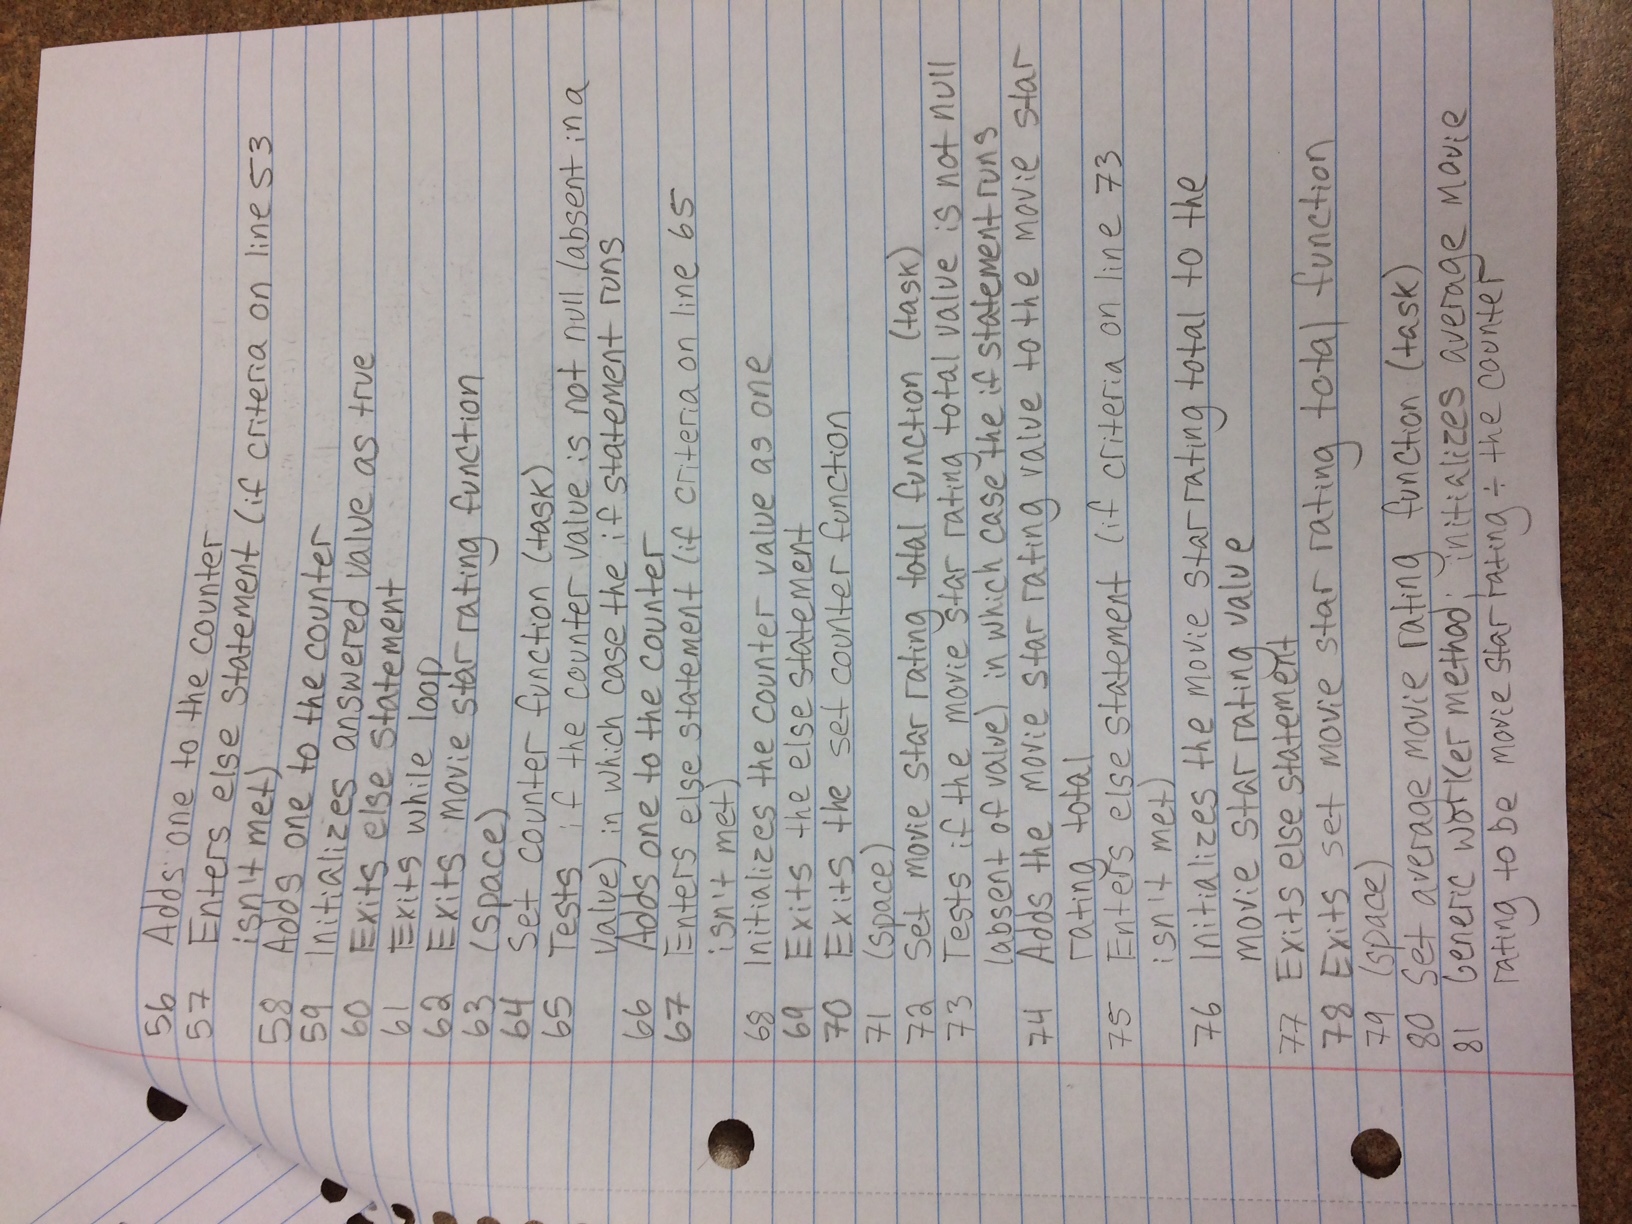 56 Adds one to the counter
57 Enters else statement (if criteria on line 53
isn't met)
58 Adds one to the counter
59 Initializes answered value as true
60 Exits else statement
61 Exits while loop
62 Exits movie star rating function
63 (space)
64 Set counter function (task)
65 Tests if the counter value is not null (absent in a
value) in which case the if statement runs
66 Adds one to the counter
67 Enters else statement (if criteria on line 65
isn't met)
68 Initializes the counter value as one
69 Exits the else statement
70 Exits the set counter function
71 (space)
72 Set movie star rating total function (task)
73 Tests if the movie star rating total value is not null
(absent of value) in which case the if statement runs
74 Adds the movie star rating value to the movie star
rating total
75 Enters else statement (if criteria on line 73
isn't met)
76 Initializes the movie star rating total to the
movie star rating value
77 Exits else statement
78 Exits set movie star rating total function
79 (space)
80 Set average movie rating function (task)
81 Generic worker method; initializes average movie
rating to be movie star rating ÷ the counter